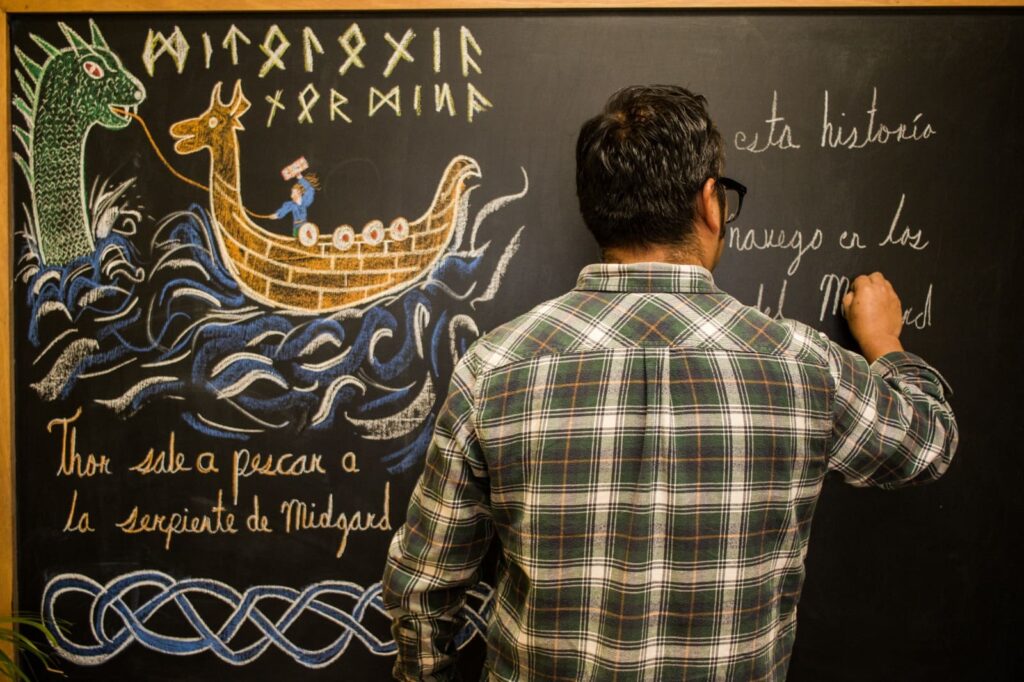 ᛗᛁᛏᛟᛚᛟᚷᛁᚨ
ᚾᛟᚱᛞᛁᛋᚨ
Thor sale a pescar a
la serpiente de Midgard
esta historia
navego en los